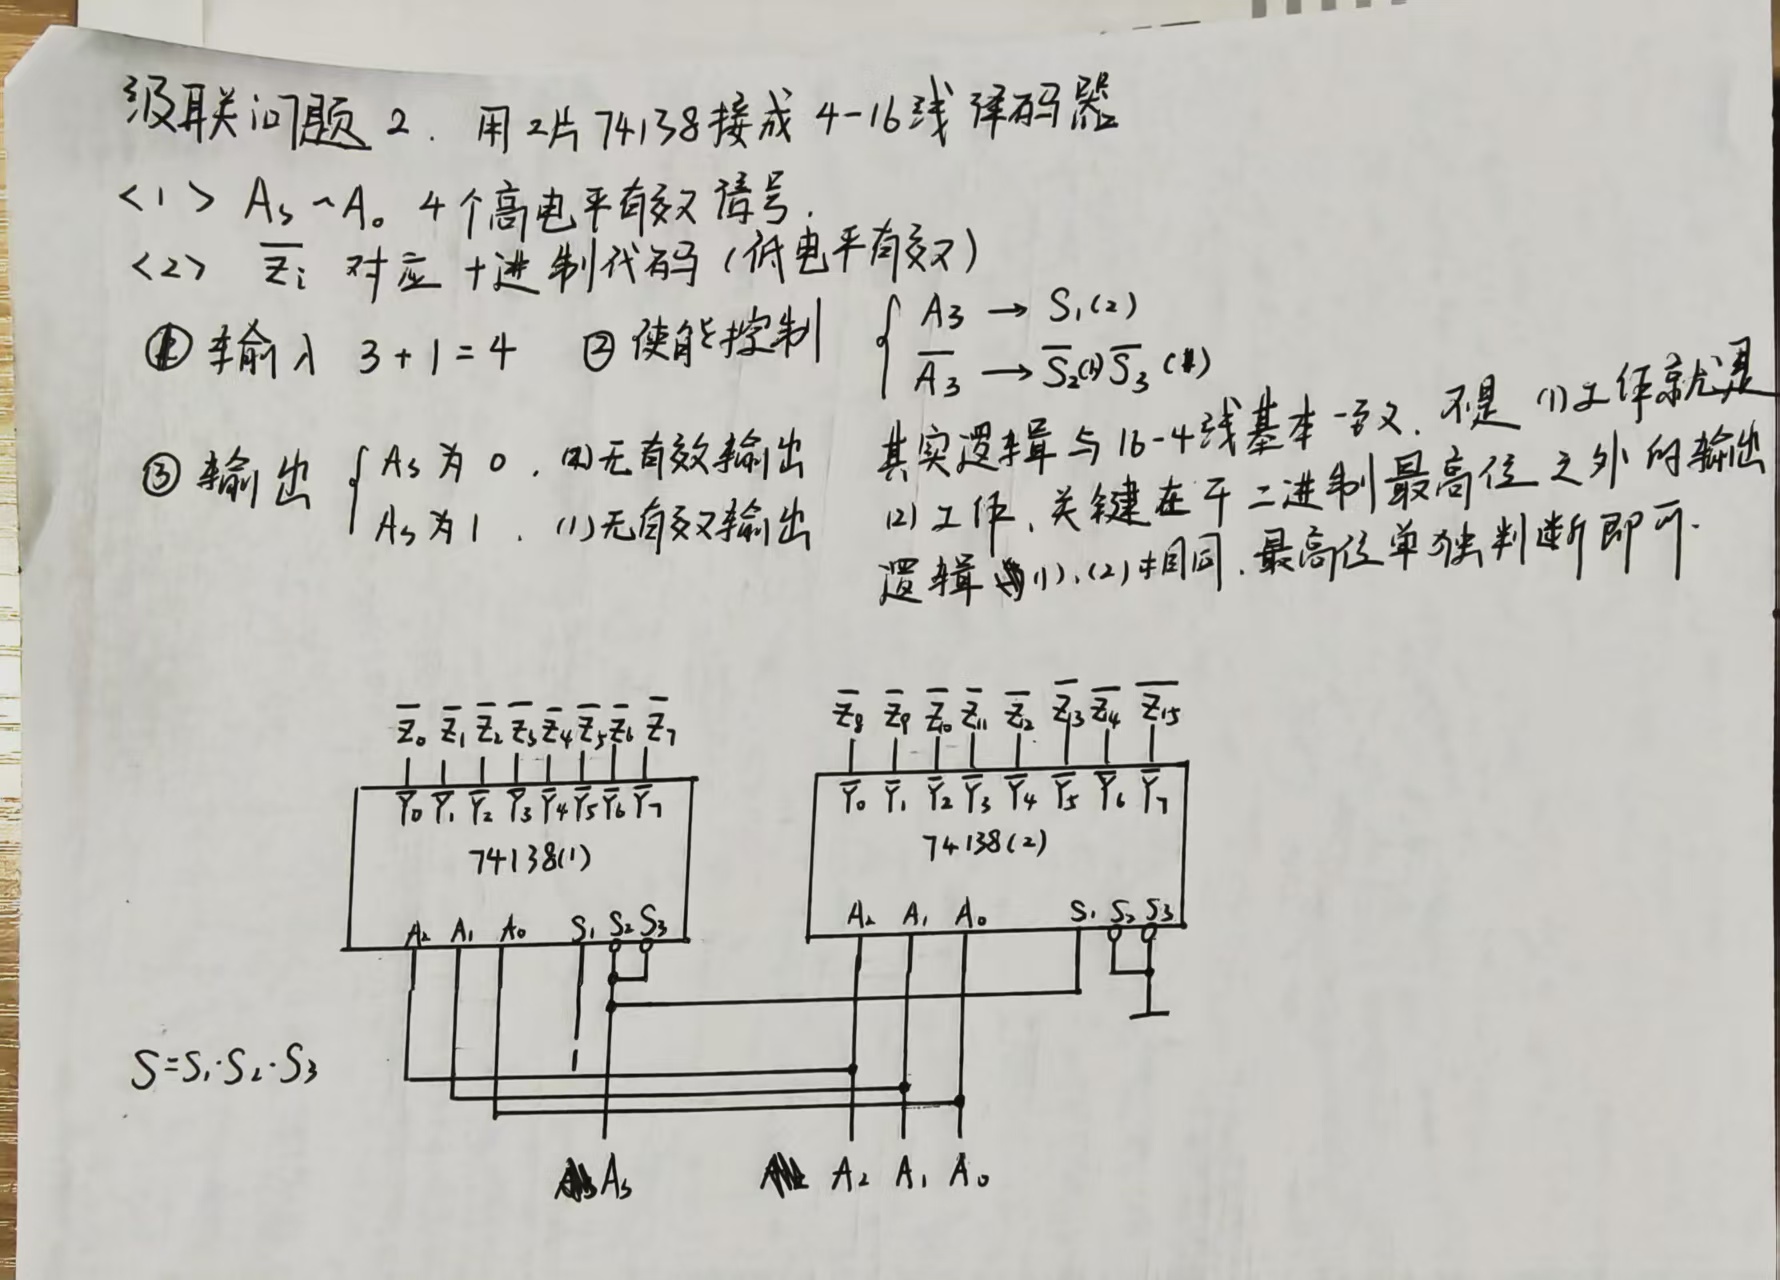 级联问题 2. 用2片74138接成 4-16线译码器
<1> A₃~A₀ 4个高电平有效信号.
<2> Z̅ᵢ 对应十进制代码(低电平有效)
① 输入 3+1=4 ② 使能控制 { A₃ → S₁(2)
A̅₃ → S̅₂(1) S̅₃(1)
③ 输出 { A₃为0, (2)无有效输出
A₃为1, (1)无有效输出
其实逻辑与16-4线基本一致, 不是(1)工作就是
(2)工作, 关键在于二进制最高位之外的输出
逻辑与(1),(2)相同, 最高位单独判断即可.
Z̅₀ Z̅₁ Z̅₂ Z̅₃ Z̅₄ Z̅₅ Z̅₆ Z̅₇
Y̅₀ Y̅₁ Y̅₂ Y̅₃ Y̅₄ Y̅₅ Y̅₆ Y̅₇
74138(1)
A₂ A₁ A₀ S₁ S₂ S₃
Z̅₈ Z̅₉ Z̅₁₀ Z̅₁₁ Z̅₁₂ Z̅₁₃ Z̅₁₄ Z̅₁₅
Y̅₀ Y̅₁ Y̅₂ Y̅₃ Y̅₄ Y̅₅ Y̅₆ Y̅₇
74138(2)
A₂ A₁ A₀ S₁ S₂ S₃
1
S=S₁·S₂·S₃
A₃ A₂ A₁ A₀